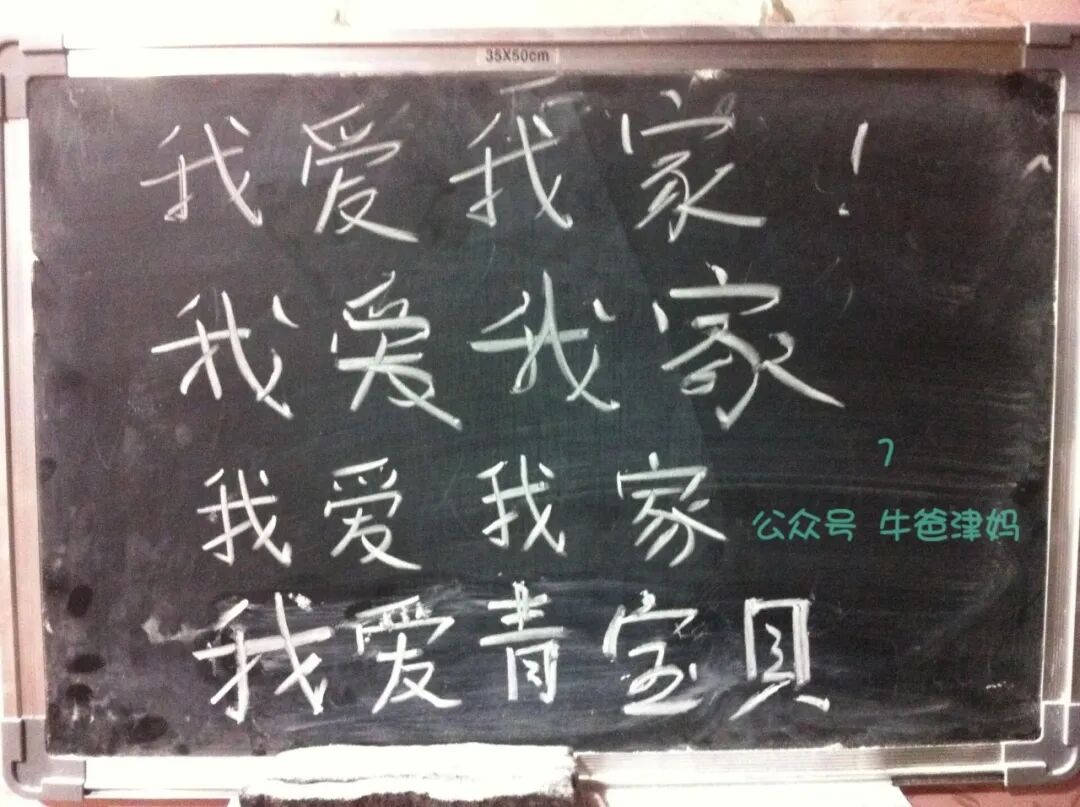 35X50cm
我爱我家！
我爱我家
我爱我家
7
公众号 牛爸津妈
我爱青宝贝